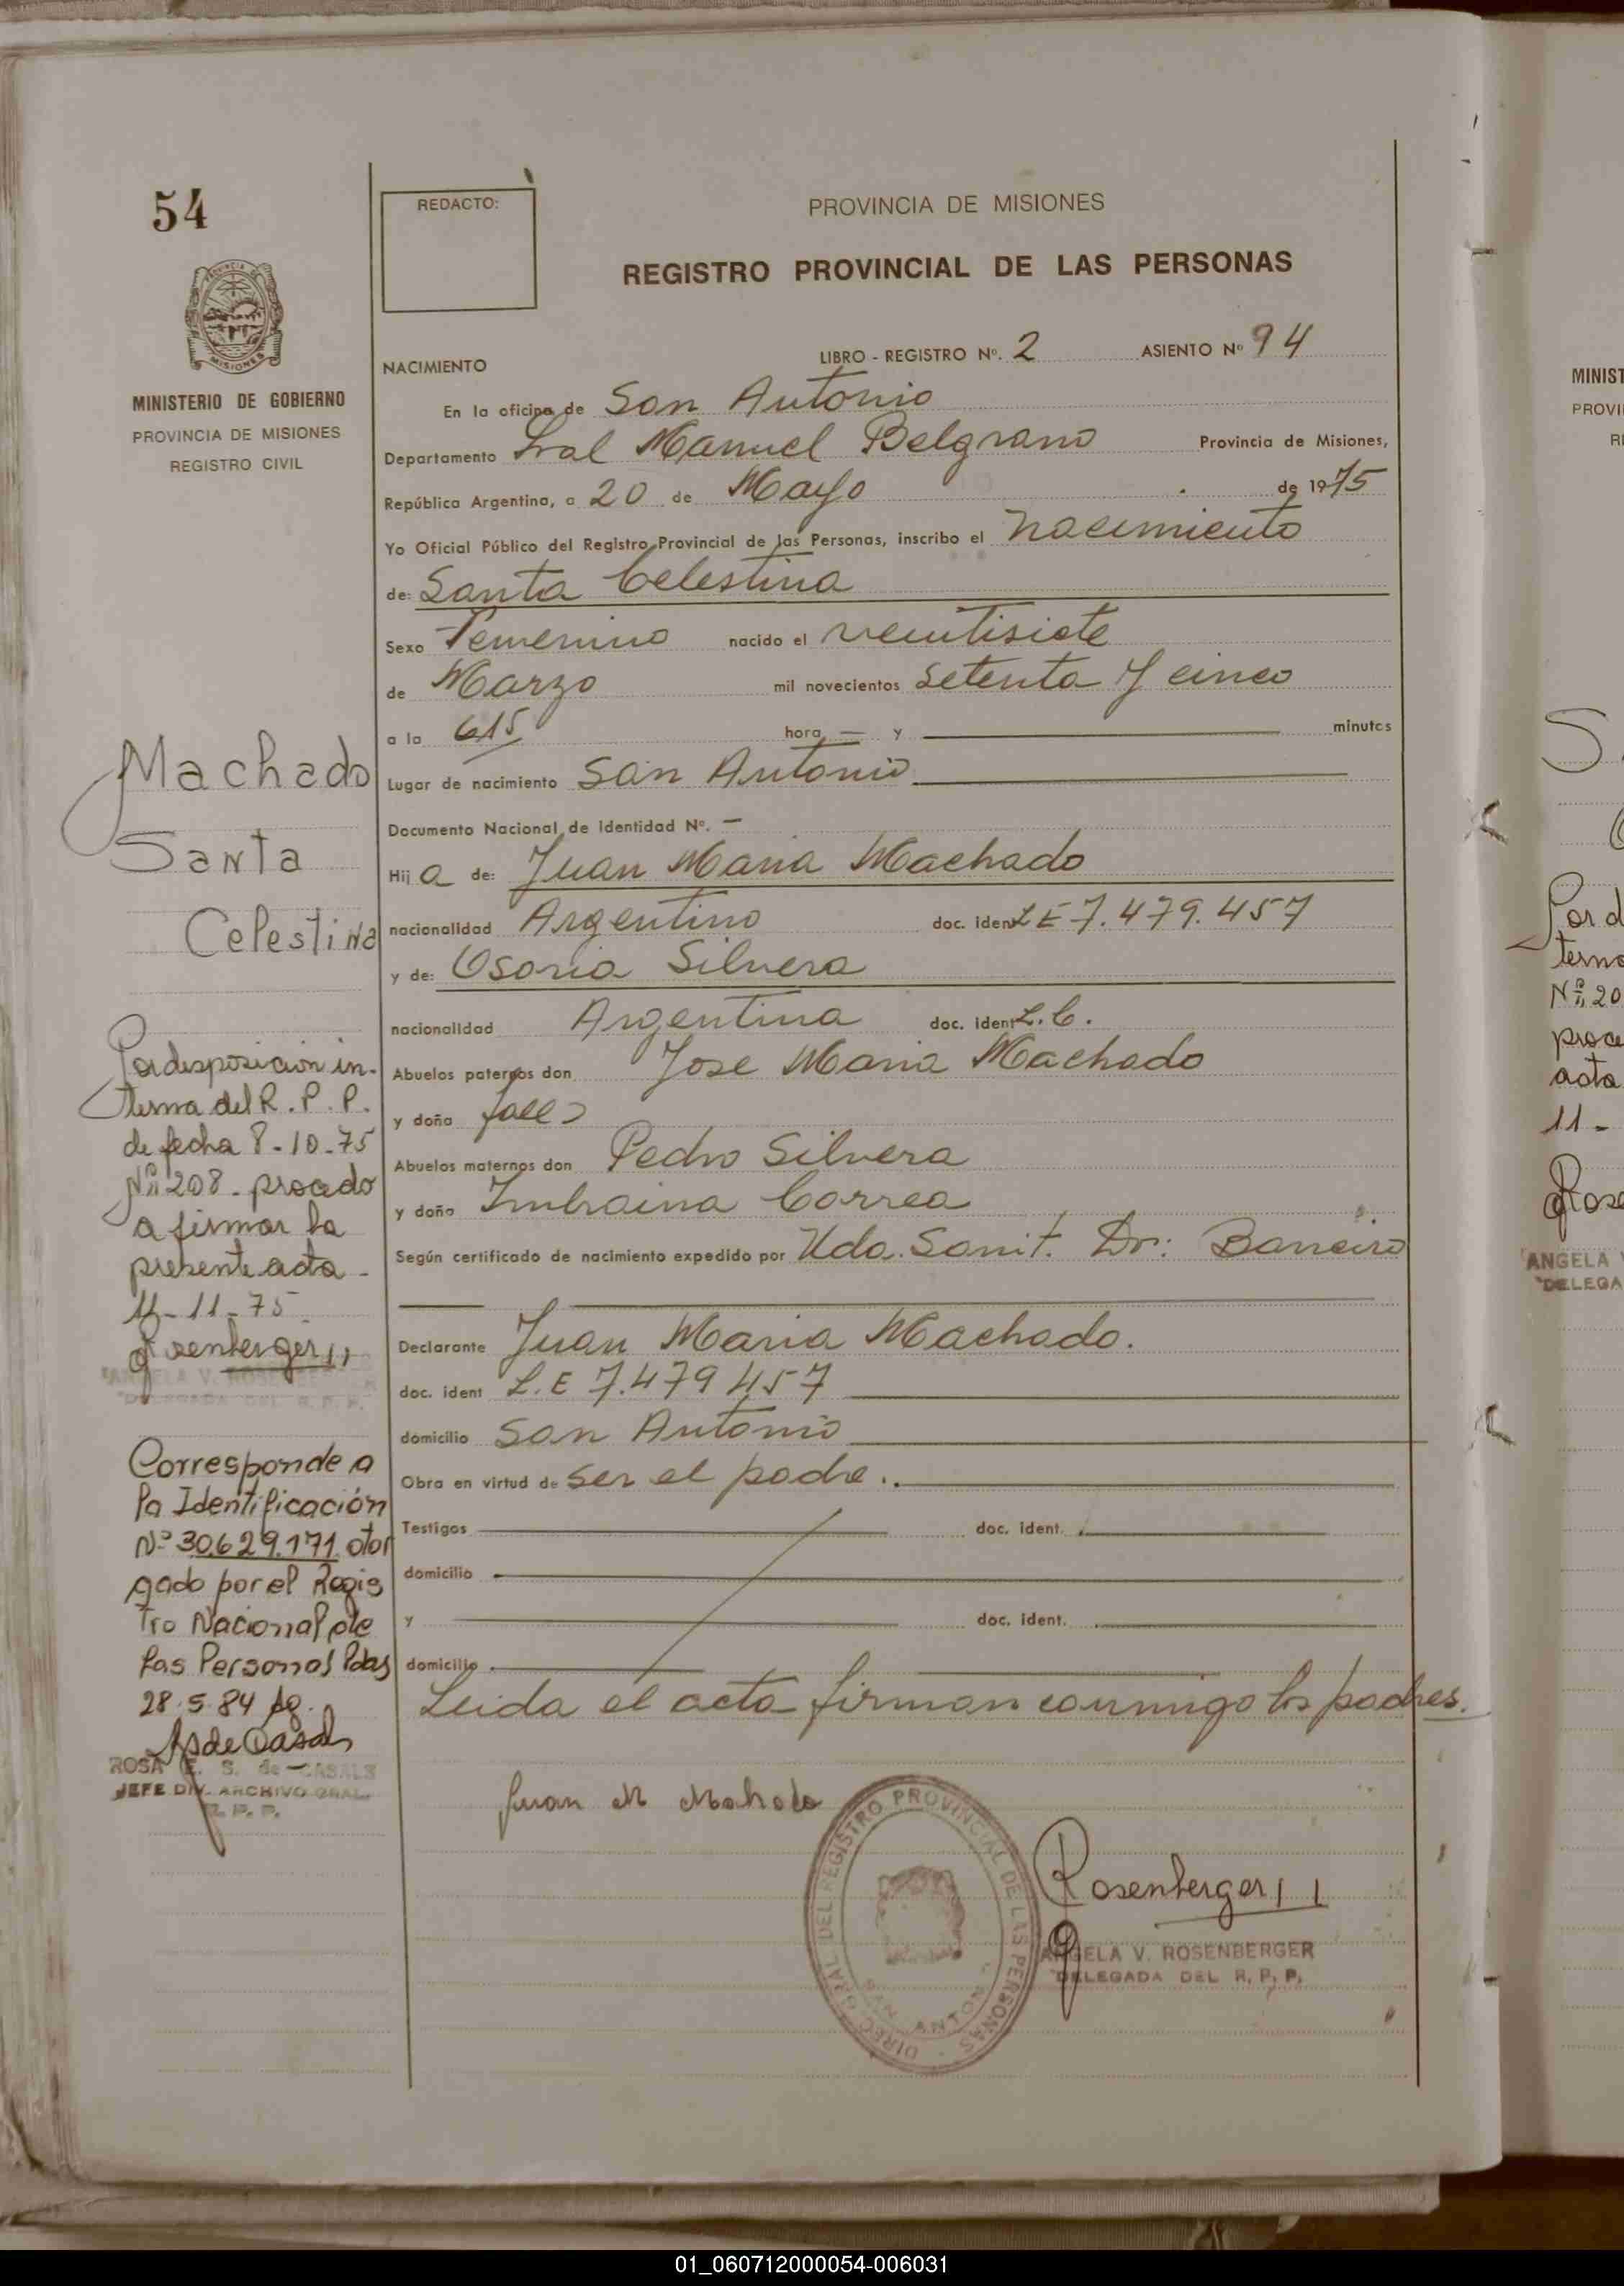 54
REDACTO:
PROVINCIA DE MISIONES
REGISTRO PROVINCIAL DE LAS PERSONAS
MISIONES
MINISTERIO DE GOBIERNO
PROVINCIA DE MISIONES
REGISTRO CIVIL
NACIMIENTO LIBRO - REGISTRO Nº. 2 ASIENTO Nº 94
En la oficina de San Antonio
Departamento Gral Manuel Belgrano Provincia de Misiones,
República Argentina, a 20 de Mayo de 1975
Yo Oficial Público del Registro Provincial de las Personas, inscribo el nacimiento
de: Santa Celestina
Sexo Femenino nacido el veintisiete
de Marzo mil novecientos setenta y cinco
a la 615 hora — y minutos
Lugar de nacimiento San Antonio
Documento Nacional de Identidad Nº. —
Hij a de: Juan Maria Machado
nacionalidad Argentino doc. ident LE 7.479.457
y de: Osoria Silvera
nacionalidad Argentina doc. ident L.C.
Abuelos paternos don Jose Maria Machado
y doña fall
Abuelos maternos don Pedro Silvera
y doña Correa
Según certificado de nacimiento expedido por Uda. Sanit. Dr:
Declarante Juan Maria Machado.
doc. ident L.E 7.479 457
domicilio San Antonio
Obra en virtud de ser el padre.
Testigos doc. ident.
domicilio
y doc. ident.
domicilio
Leida el acta firman conmigo los padres.
Juan M Machado
DIREC. GRAL. DEL REGISTRO PROVINCIAL DE LAS PERSONAS
SAN ANTONIO
Rosenberger
ANGELA V. ROSENBERGER
DELEGADA DEL R. P. P.
Machado
Santa
Celestina
Por disposicion in-
terna del R. P. P.
de fecha 8-10-75
Nº 208 - procedo
a firmar la
presente acta -
11-11-75
Rosenberger
ANGELA V. ROSENBERGER
DELEGADA DEL R. P. P.
Corresponde a
la Identificación
Nº 30.629.171 otor
gado por el Regis
tro Nacional de
las Personas Pdas
28.5.84
ROSA E. S. de CASALS
JEFE DIV. ARCHIVO GRAL.
R. P. P.
MINIST
PROVI
R
S
Por d
terna
Nº 20
proce
acta
11-
Rose
ANGELA V
DELEGA
01_060712000054-006031